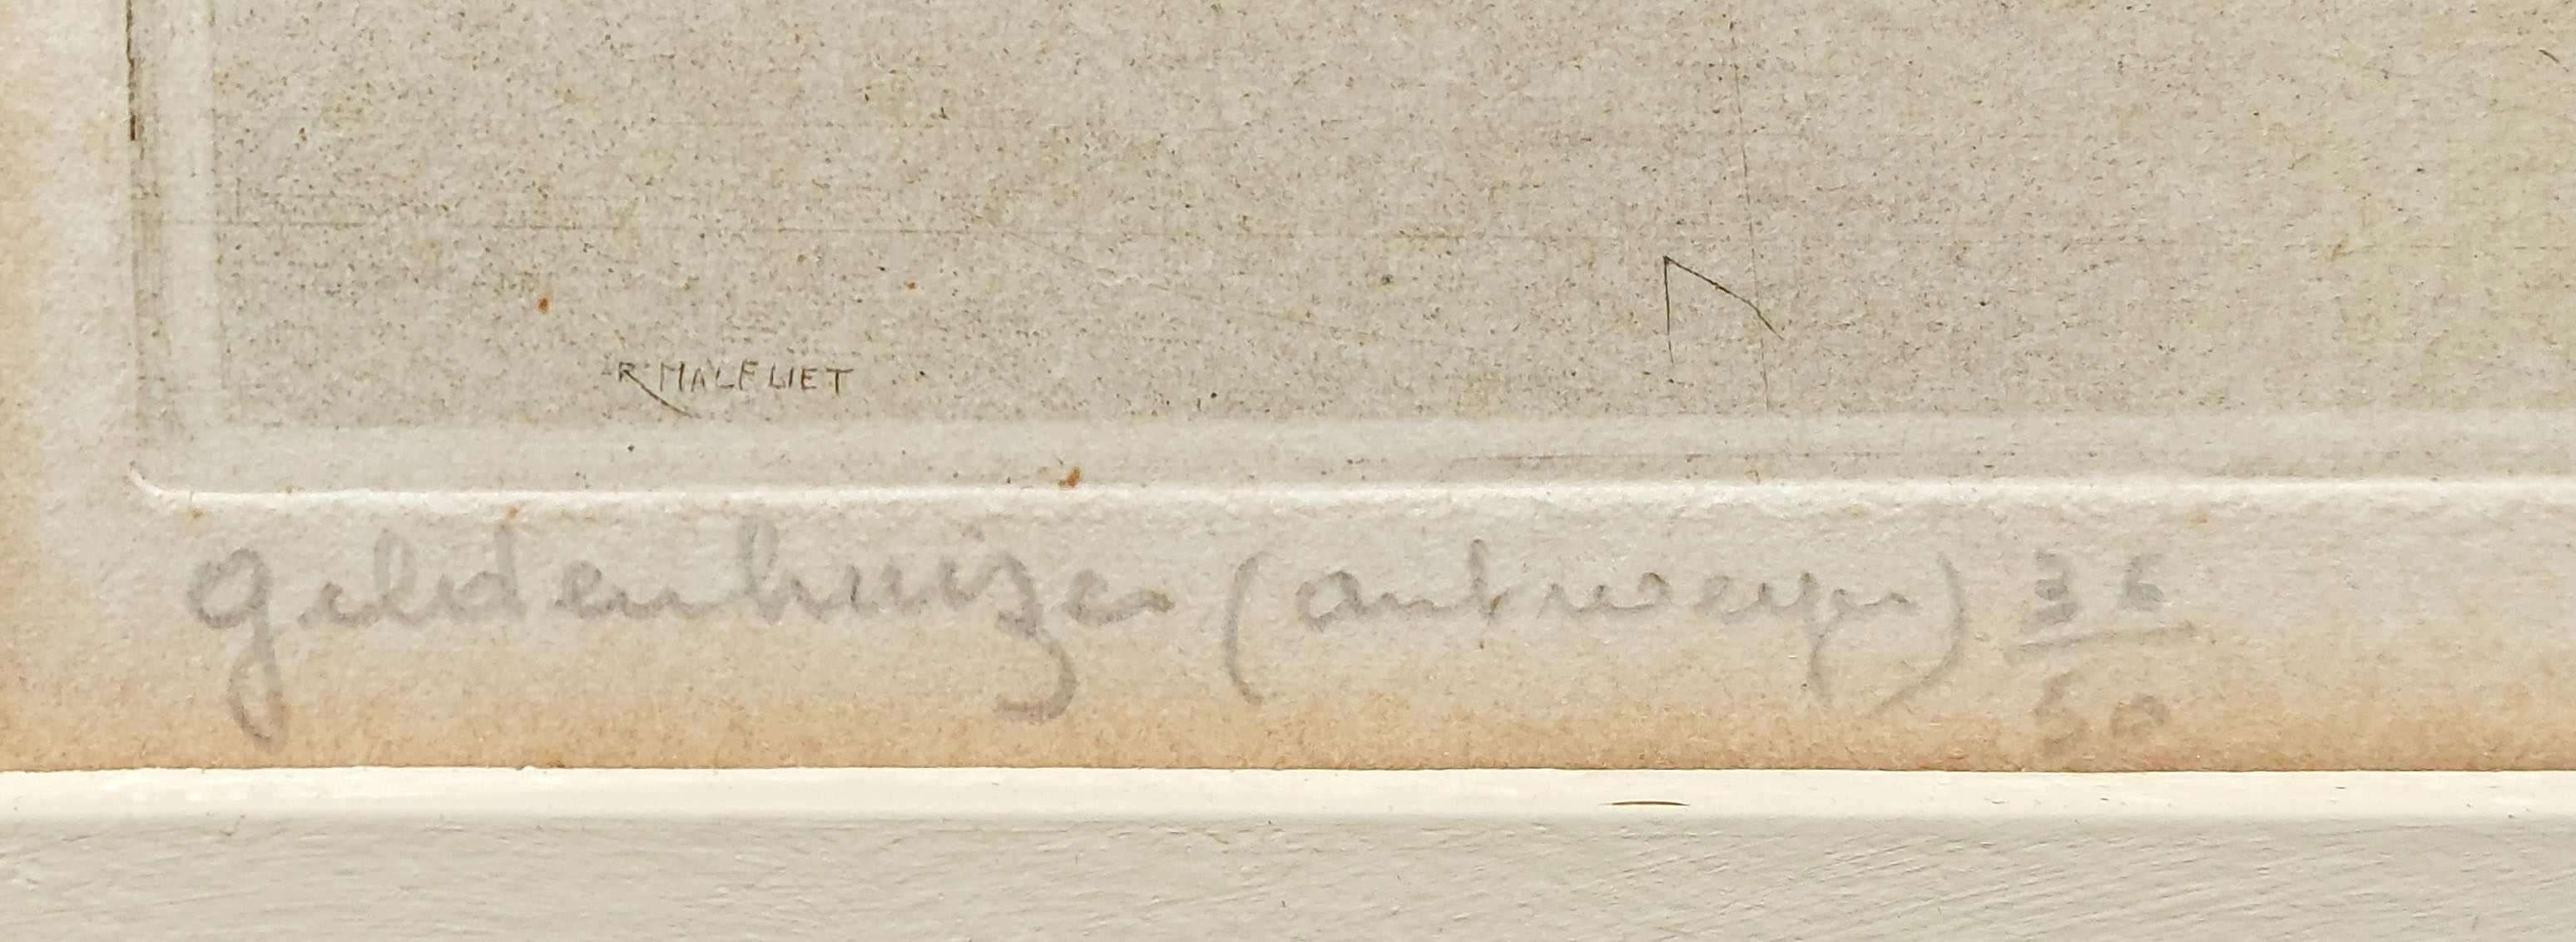 R. MALFLIET
gildenhuizen (antwerpen) 36/50